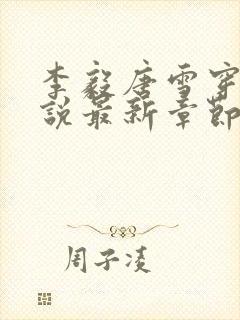 李毅唐雪穿
说最新章节
周子凌